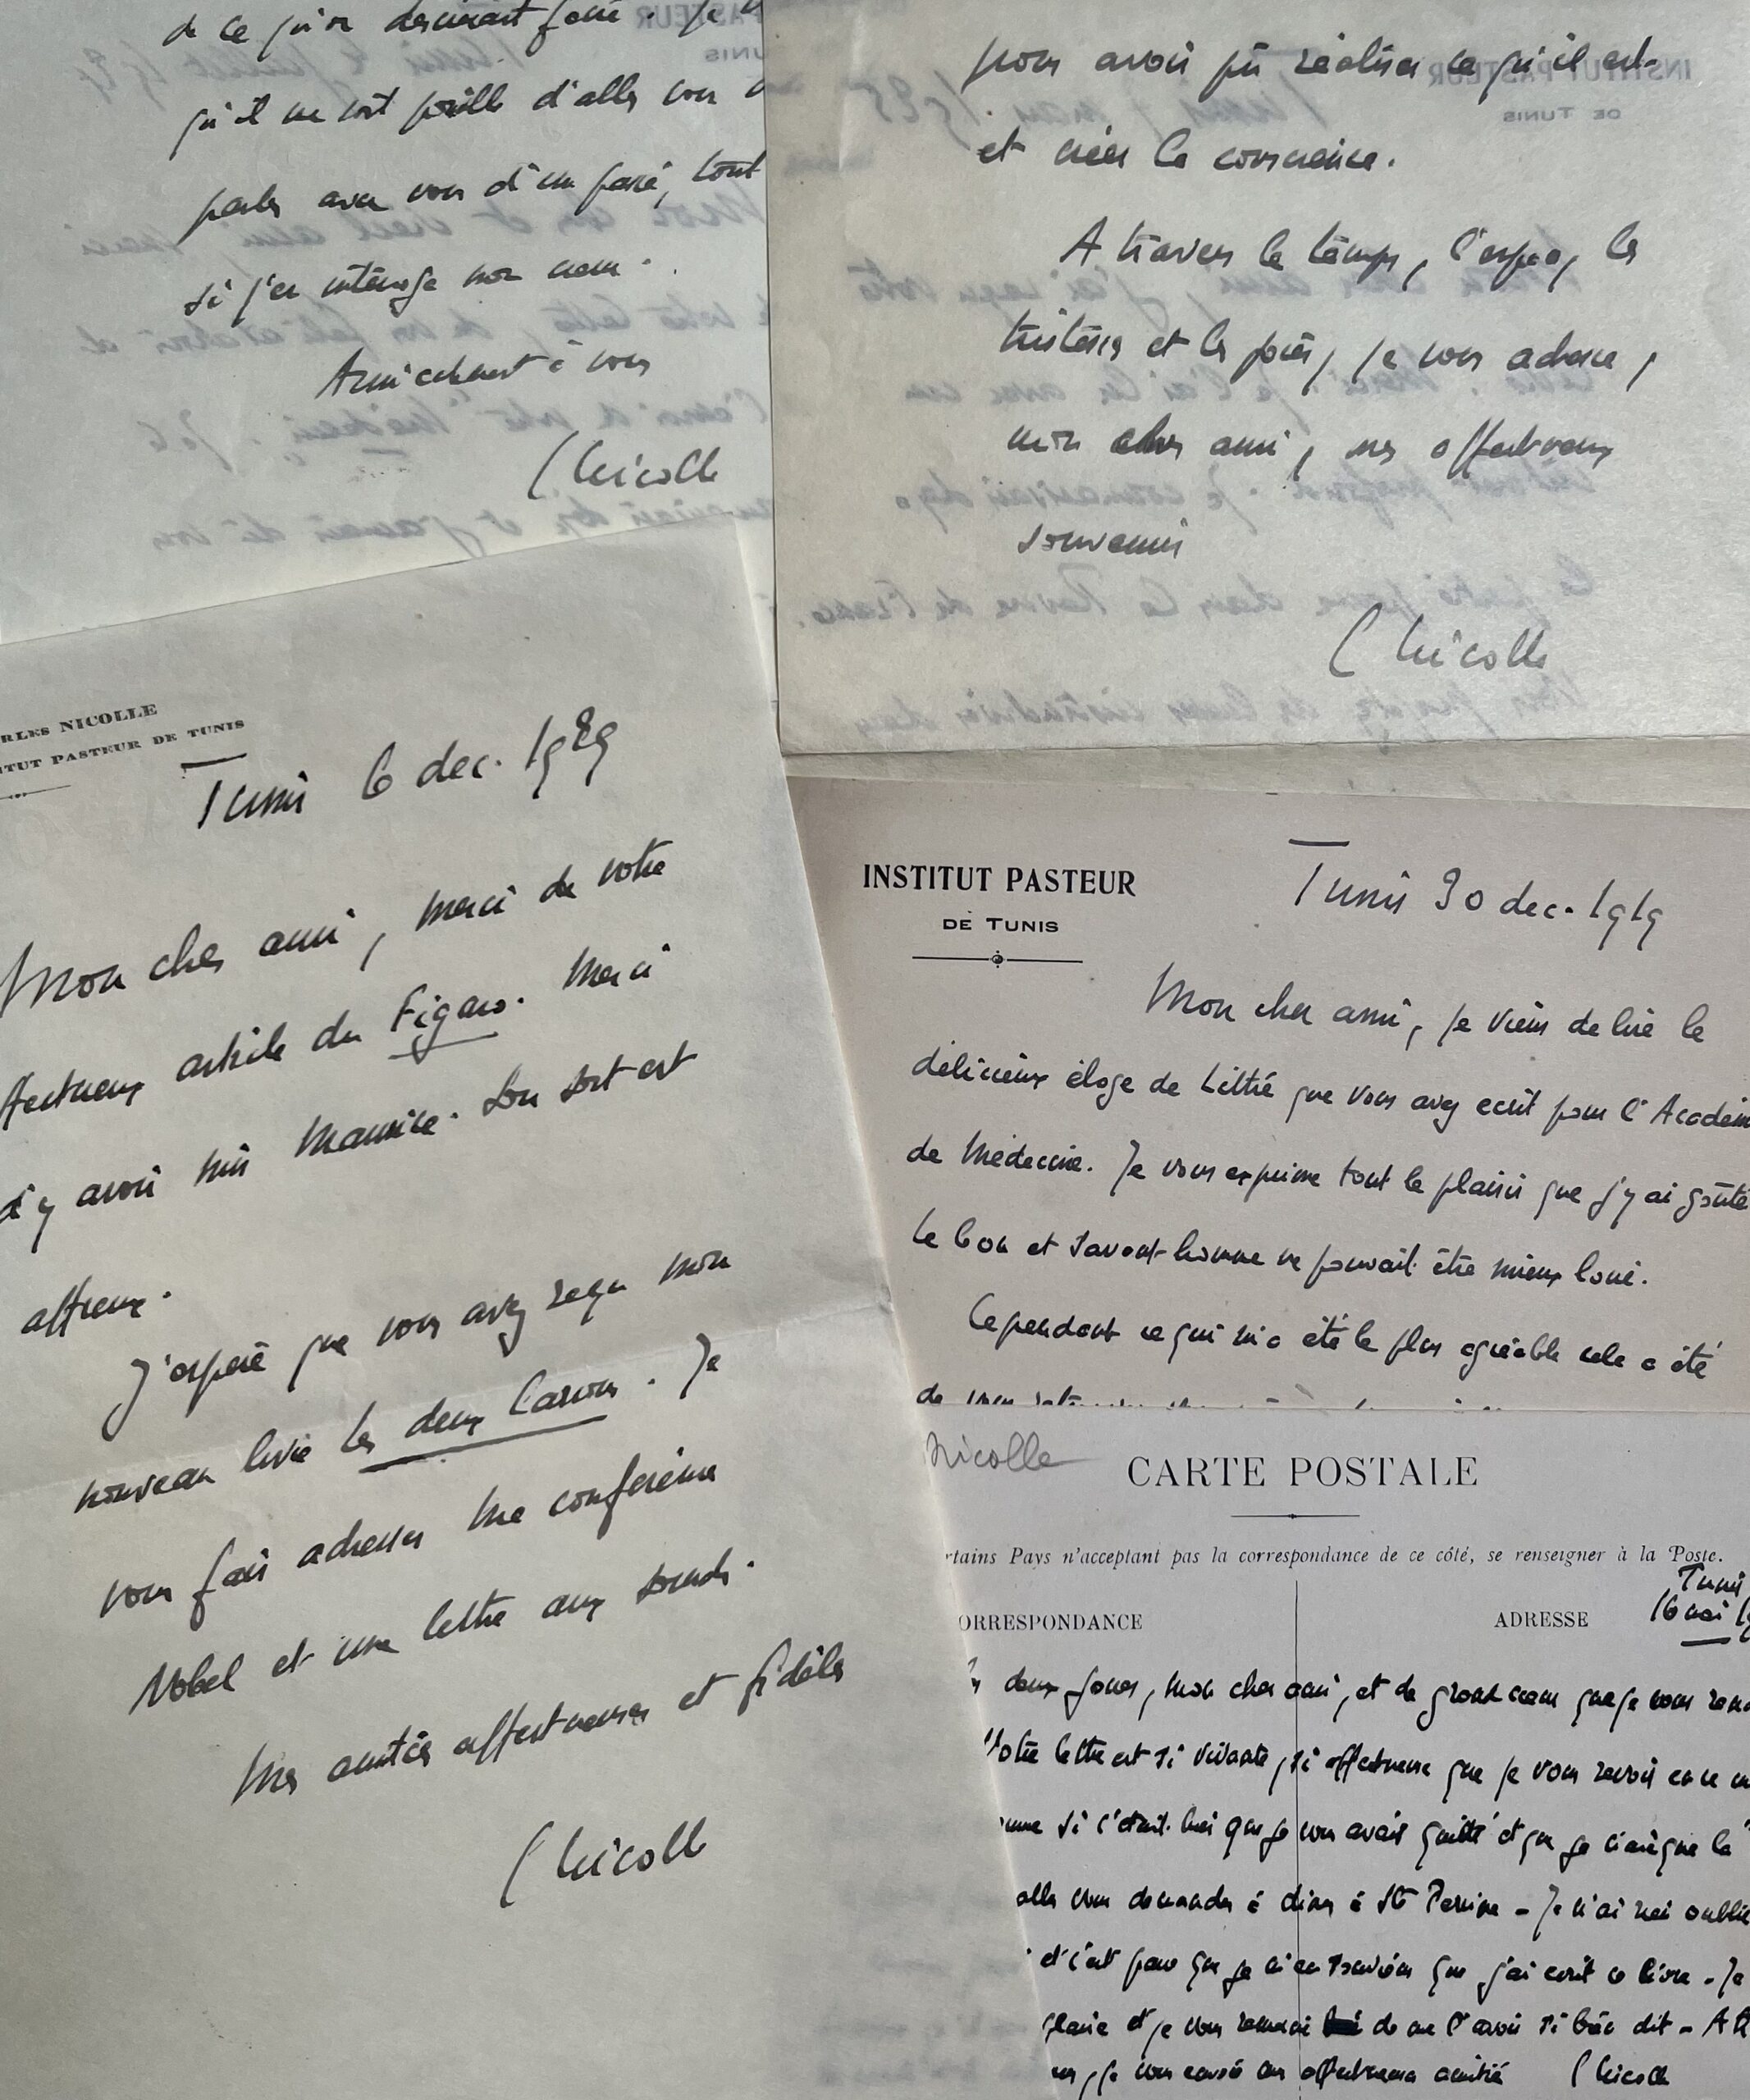 de ce qu'on devenait fou. Je
qu'il me soit possible d'aller vous
parler avec vous d'un passé, tout
si j'en interroge mon cœur.
Amicalement à vous
C Nicolle
pour avoir pu réaliser ce qu'il est
et créer la conscience.
A travers le temps, l'espace, les
tristesses et les joies, je vous adresse,
mon cher ami, mes affectueux
souvenirs
C Nicolle
RLES NICOLLE
TUT PASTEUR DE TUNIS
Tunis 6 dec. 1929
Mon cher ami, merci de votre
ffectueux article du Figaro. Merci
d'y avoir mis Maurice. Son sort est
affreux.
J'espère que vous avez reçu mon
nouveau livre les deux larrons. Je
vous fais adresser ma conférence
Nobel et une lettre aux sourds.
Mes amitiés affectueuses et fidèles
C Nicolle
INSTITUT PASTEUR
DE TUNIS
Tunis 30 dec. 1919
Mon cher ami, je viens de lire le
délicieux éloge de Littré que vous avez ecrit pour l'Académ
de Médecine. Je vous exprime tout le plaisir que j'y ai goûté
Le bon et savant homme ne pouvait être mieux loué.
Cependant ce qui m'a été le plus agréable cela a été
de vous
Nicolle
CARTE POSTALE
rtains Pays n'acceptant pas la correspondance de ce côté, se renseigner à la Poste.
ORRESPONDANCE
ADRESSE
Tunis
16 mai 19
deux joues, mon cher ami, et de grand cœur que je vous
Votre lettre est si vivante, si affectueuse que je vous revois en ce
mme si c'était hier que je vous avais quitté et que je n'aie que la
aller vous demander à diner à Ste Perine - Je n'ai rien oublié
et c'est pour que je m'en souvien que j'ai ecrit ce livre - Je
plaisir et je vous remercie de me l'avoir si bien dit - A
je vous envoie mes affectueuses amitiés C Nicolle